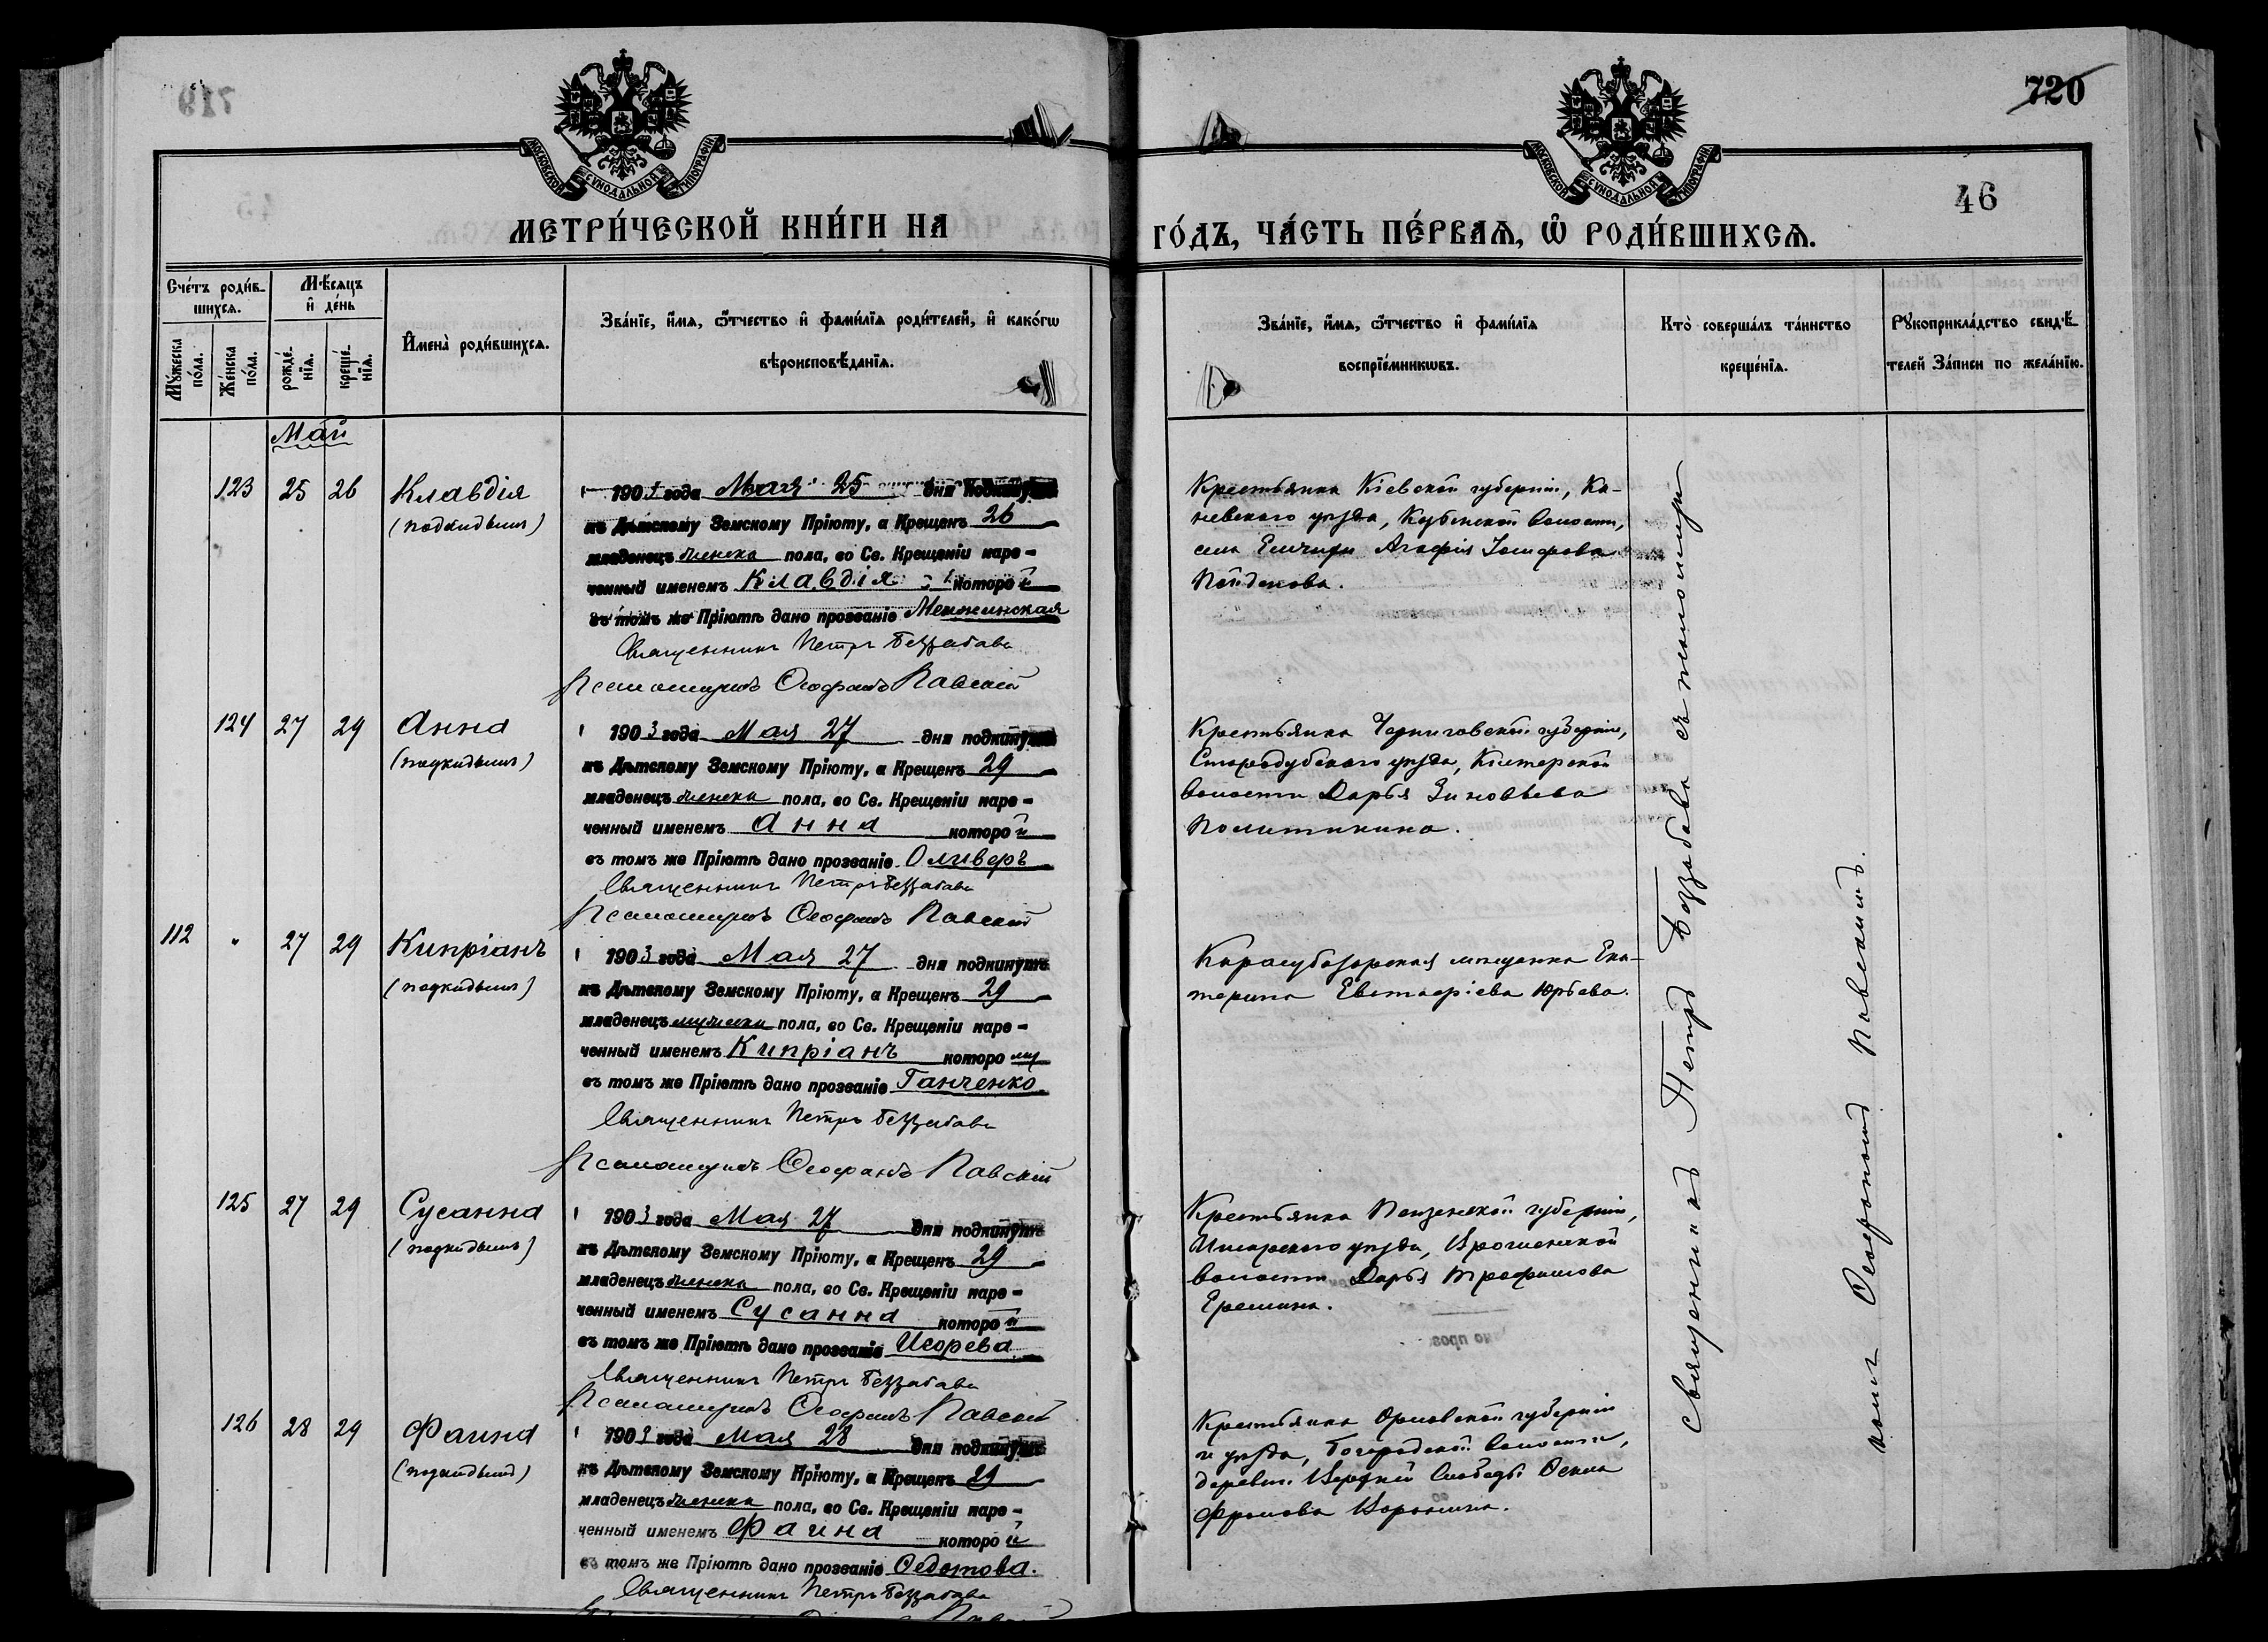 720
46
МОСКОВСКОЙ СѴНОДАЛЬНОЙ ТИПОГРАФІИ
МОСКОВСКОЙ СѴНОДАЛЬНОЙ ТИПОГРАФІИ
МЕТРИ́ЧЕСКОЙ КНИ́ГИ НА
ГО́ДЪ, ЧА́СТЬ ПЕ́РВАѦ, Ѡ҆ РОДИ́ВШИХСѦ.
Сче́тъ роди́в-
шихсѧ.
Мꙋ́жеска по́ла.
Же́нска по́ла.
Мѣ́сѧцъ
и҆ де́нь
рожде́-
нїѧ.
креще́-
нїѧ.
И҆мена̀ роди́вшихсѧ.
Зва́нїе, и҆́мѧ, ѻ҆́тчество и҆ фами́лїѧ роди́телей, и҆ како́гѡ
вѣроисповѣ́данїѧ.
Зва́нїе, и҆́мѧ, ѻ҆́тчество и҆ фами́лїѧ
воспрїе́мникѡвъ.
Кто̀ соверша́лъ та́инство
креще́нїѧ.
Рꙋкоприкла́дство свидѣ́-
телей за́писи по жела́нїю.
Май
123 25 26 Клавдія
(подкидышъ)
1903 года Мая 25 дня подкинутъ
къ Дѣтскому Земскому Пріюту, а Крещенъ 26
младенецъ женска пола, во Св. Крещеніи наре-
ченный именемъ Клавдія которой
въ томъ же Пріютѣ дано прозваніе Менжинская
Священникъ Петръ Беззабава
Псаломщикъ Ѳеофанъ Павскій
Крестьянка Кіевской губерніи, Ка-
невского уѣзда, волости,
села Емчихи Агафія
124 27 29 Анна
(подкидышъ)
1903 года Мая 27 дня подкинутъ
къ Дѣтскому Земскому Пріюту, а Крещенъ 29
младенецъ женска пола, во Св. Крещеніи наре-
ченный именемъ Анна которой
въ томъ же Пріютѣ дано прозваніе Оливеръ
Священникъ Петръ Беззабава
Псаломщикъ Ѳеофанъ Павскій
Крестьянка Черниговской губерніи,
Стародубского уѣзда,
волости Дарья Зиновьева
Политикина.
112 " 27 29 Кипріанъ
(подкидышъ)
1903 года Мая 27 дня подкинутъ
къ Дѣтскому Земскому Пріюту, а Крещенъ 29
младенецъ мужска пола, во Св. Крещеніи наре-
ченный именемъ Кипріанъ которому
въ томъ же Пріютѣ дано прозваніе Ганченко
Священникъ Петръ Беззабава
Псаломщикъ Ѳеофанъ Павскій
Карасубазарская мѣщанка Ека-
терина Евстафіева Юрьева.
125 27 29 Сусанна
(подкидышъ)
1903 года Мая 27 дня подкинутъ
къ Дѣтскому Земскому Пріюту, а Крещенъ 29
младенецъ женска пола, во Св. Крещеніи наре-
ченный именемъ Сусанна которой
въ томъ же Пріютѣ дано прозваніе Игорева
Священникъ Петръ Беззабава
Псаломщикъ Ѳеофанъ Павскій
Крестьянка Пензенской губерніи,
Инсарского уѣзда,
волости Дарья Трофимова
Еремина.
126 28 29 Фаина
(подкидышъ)
1903 года Мая 28 дня подкинутъ
къ Дѣтскому Земскому Пріюту, а Крещенъ 29
младенецъ женска пола, во Св. Крещеніи наре-
ченный именемъ Фаина которой
въ томъ же Пріютѣ дано прозваніе Ѳедотова.
Священникъ Петръ Беззабава
Крестьянка Орловской губерніи
и уѣзда, Богородской волости,
деревни Слободы
Фролова Воронина.
Священникъ Петръ Беззабава съ псаломщи-
комъ Ѳеофаномъ Павскимъ.